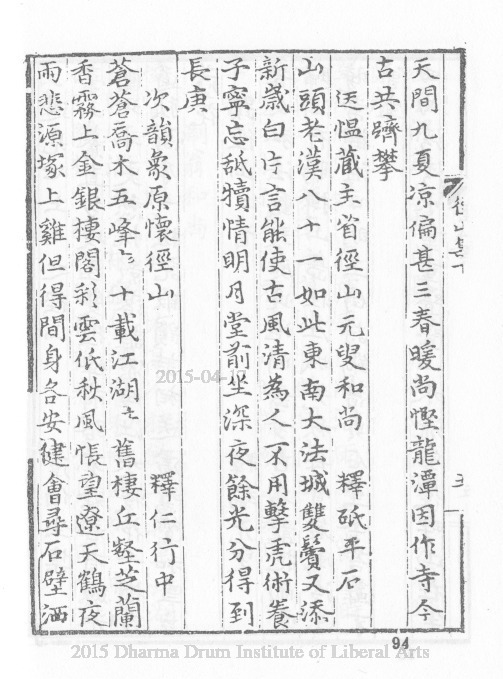 天間九夏凉偏甚三春暖尚慳龍潭因作寺今
古共躋攀
送愠藏主省徑山元叟和尚　釋砥平石
山頭老漢八十一如此東南大法城雙鬢又添
新歲白片言能使古風清為人不用擊虎術養
子寧忘舐犢情明月堂前坐深夜餘光分得到
長庚
次韻象原懷徑山　釋仁行中
蒼蒼喬木五峰〻十載江湖〻舊棲丘壑芝蘭
香霧上金銀樓閣彩雲低秋風悵望遼天鶴夜
雨悲源塚上雞但得間身各安健會尋石壁洒
徑山集
94
2015-04-17
2015 Dharma Drum Institute of Liberal Arts